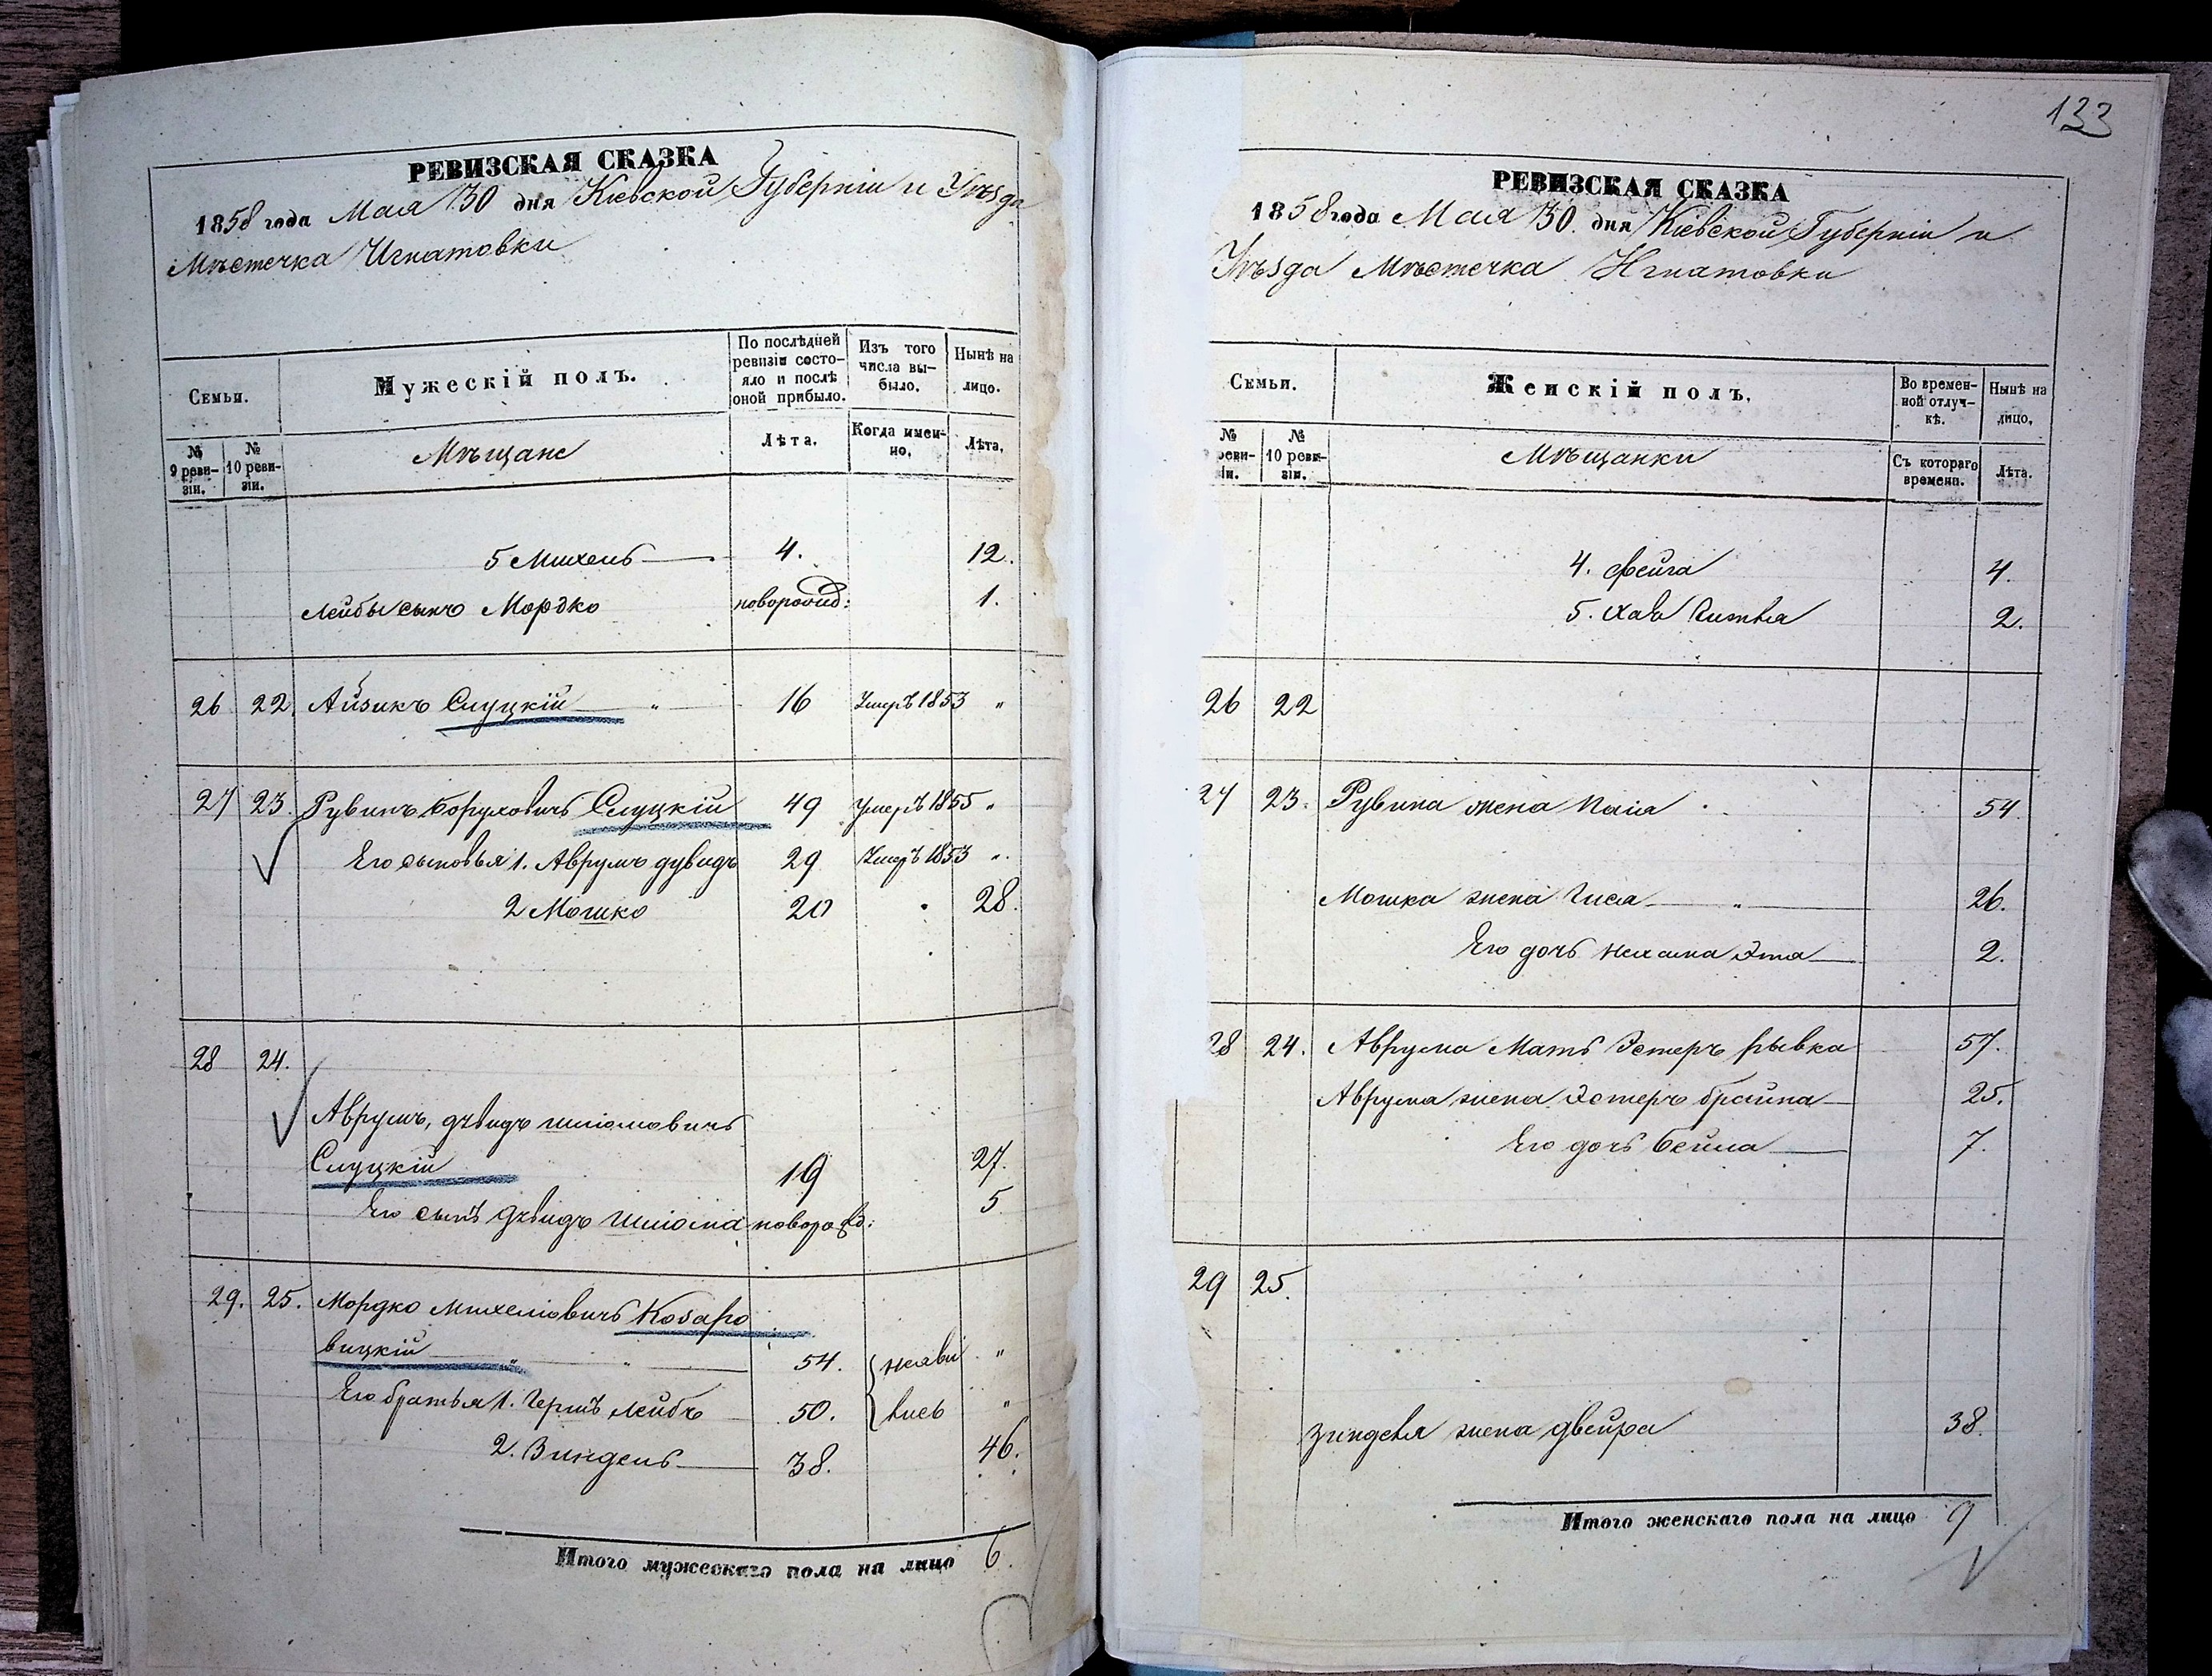 РЕВИЗСКАЯ СКАЗКА
1858 года Мая 30 дня Кіевской Губерніи и Уѣзда
Мѣстечка Игнатовки
Семьи.
Мужескій полъ.
По послѣдней ревизіи состояло и послѣ оной прибыло.
Изъ того числа выбыло.
Нынѣ на лицо.
№ 9 ревизіи.
№ 10 ревизіи.
Мѣщане
Лѣта.
Когда именно.
Лѣта.
5 Михель 4. 12.
Лейбы сынъ Мордко новорожд: 1.
26 22. Айзикъ Слуцкій " 16 Умеръ 1853 "
27 23. Рувинъ Боруховичъ Слуцкій 49 Умеръ 1855 "
Его сыновья 1. Аврумъ дувидъ 29 Умеръ 1853 "
2 Мошко 20 28.
28 24.
Аврумъ, дувидъ шліомовичъ
Слуцкій 19 27.
Его сынъ дувидъ шліома новорожд: 5
29. 25. Мордко михеліовичъ Козаро
вицкій " " 54. неяви "
Его братья 1. Гершъ лейбъ 50. лись "
2. Зиндель 38. 46.
Итого мужескаго пола на лицо 6.
133
РЕВИЗСКАЯ СКАЗКА
1858 года Мая 30. дня Кіевской Губерніи и
Уѣзда Мѣстечка Игнатовки
Семьи.
Женскій полъ.
Во временной отлучкѣ.
Нынѣ на лицо.
№ ревизіи.
№ 10 ревизіи.
Мѣщанки
Съ котораго времени.
Лѣта.
4. фейга 4.
5. Хая 2.
26 22
27 23. Рувина жена 54.
Мошка жена 26.
Его дочь нехама Эта 2.
28 24. Аврума Мать Эстеръ рывка 57.
Аврума жена Эстеръ брайна 25.
Его дочь бейла 7.
29 25.
зинделя жена двейра 38.
Итого женскаго пола на лицо 9